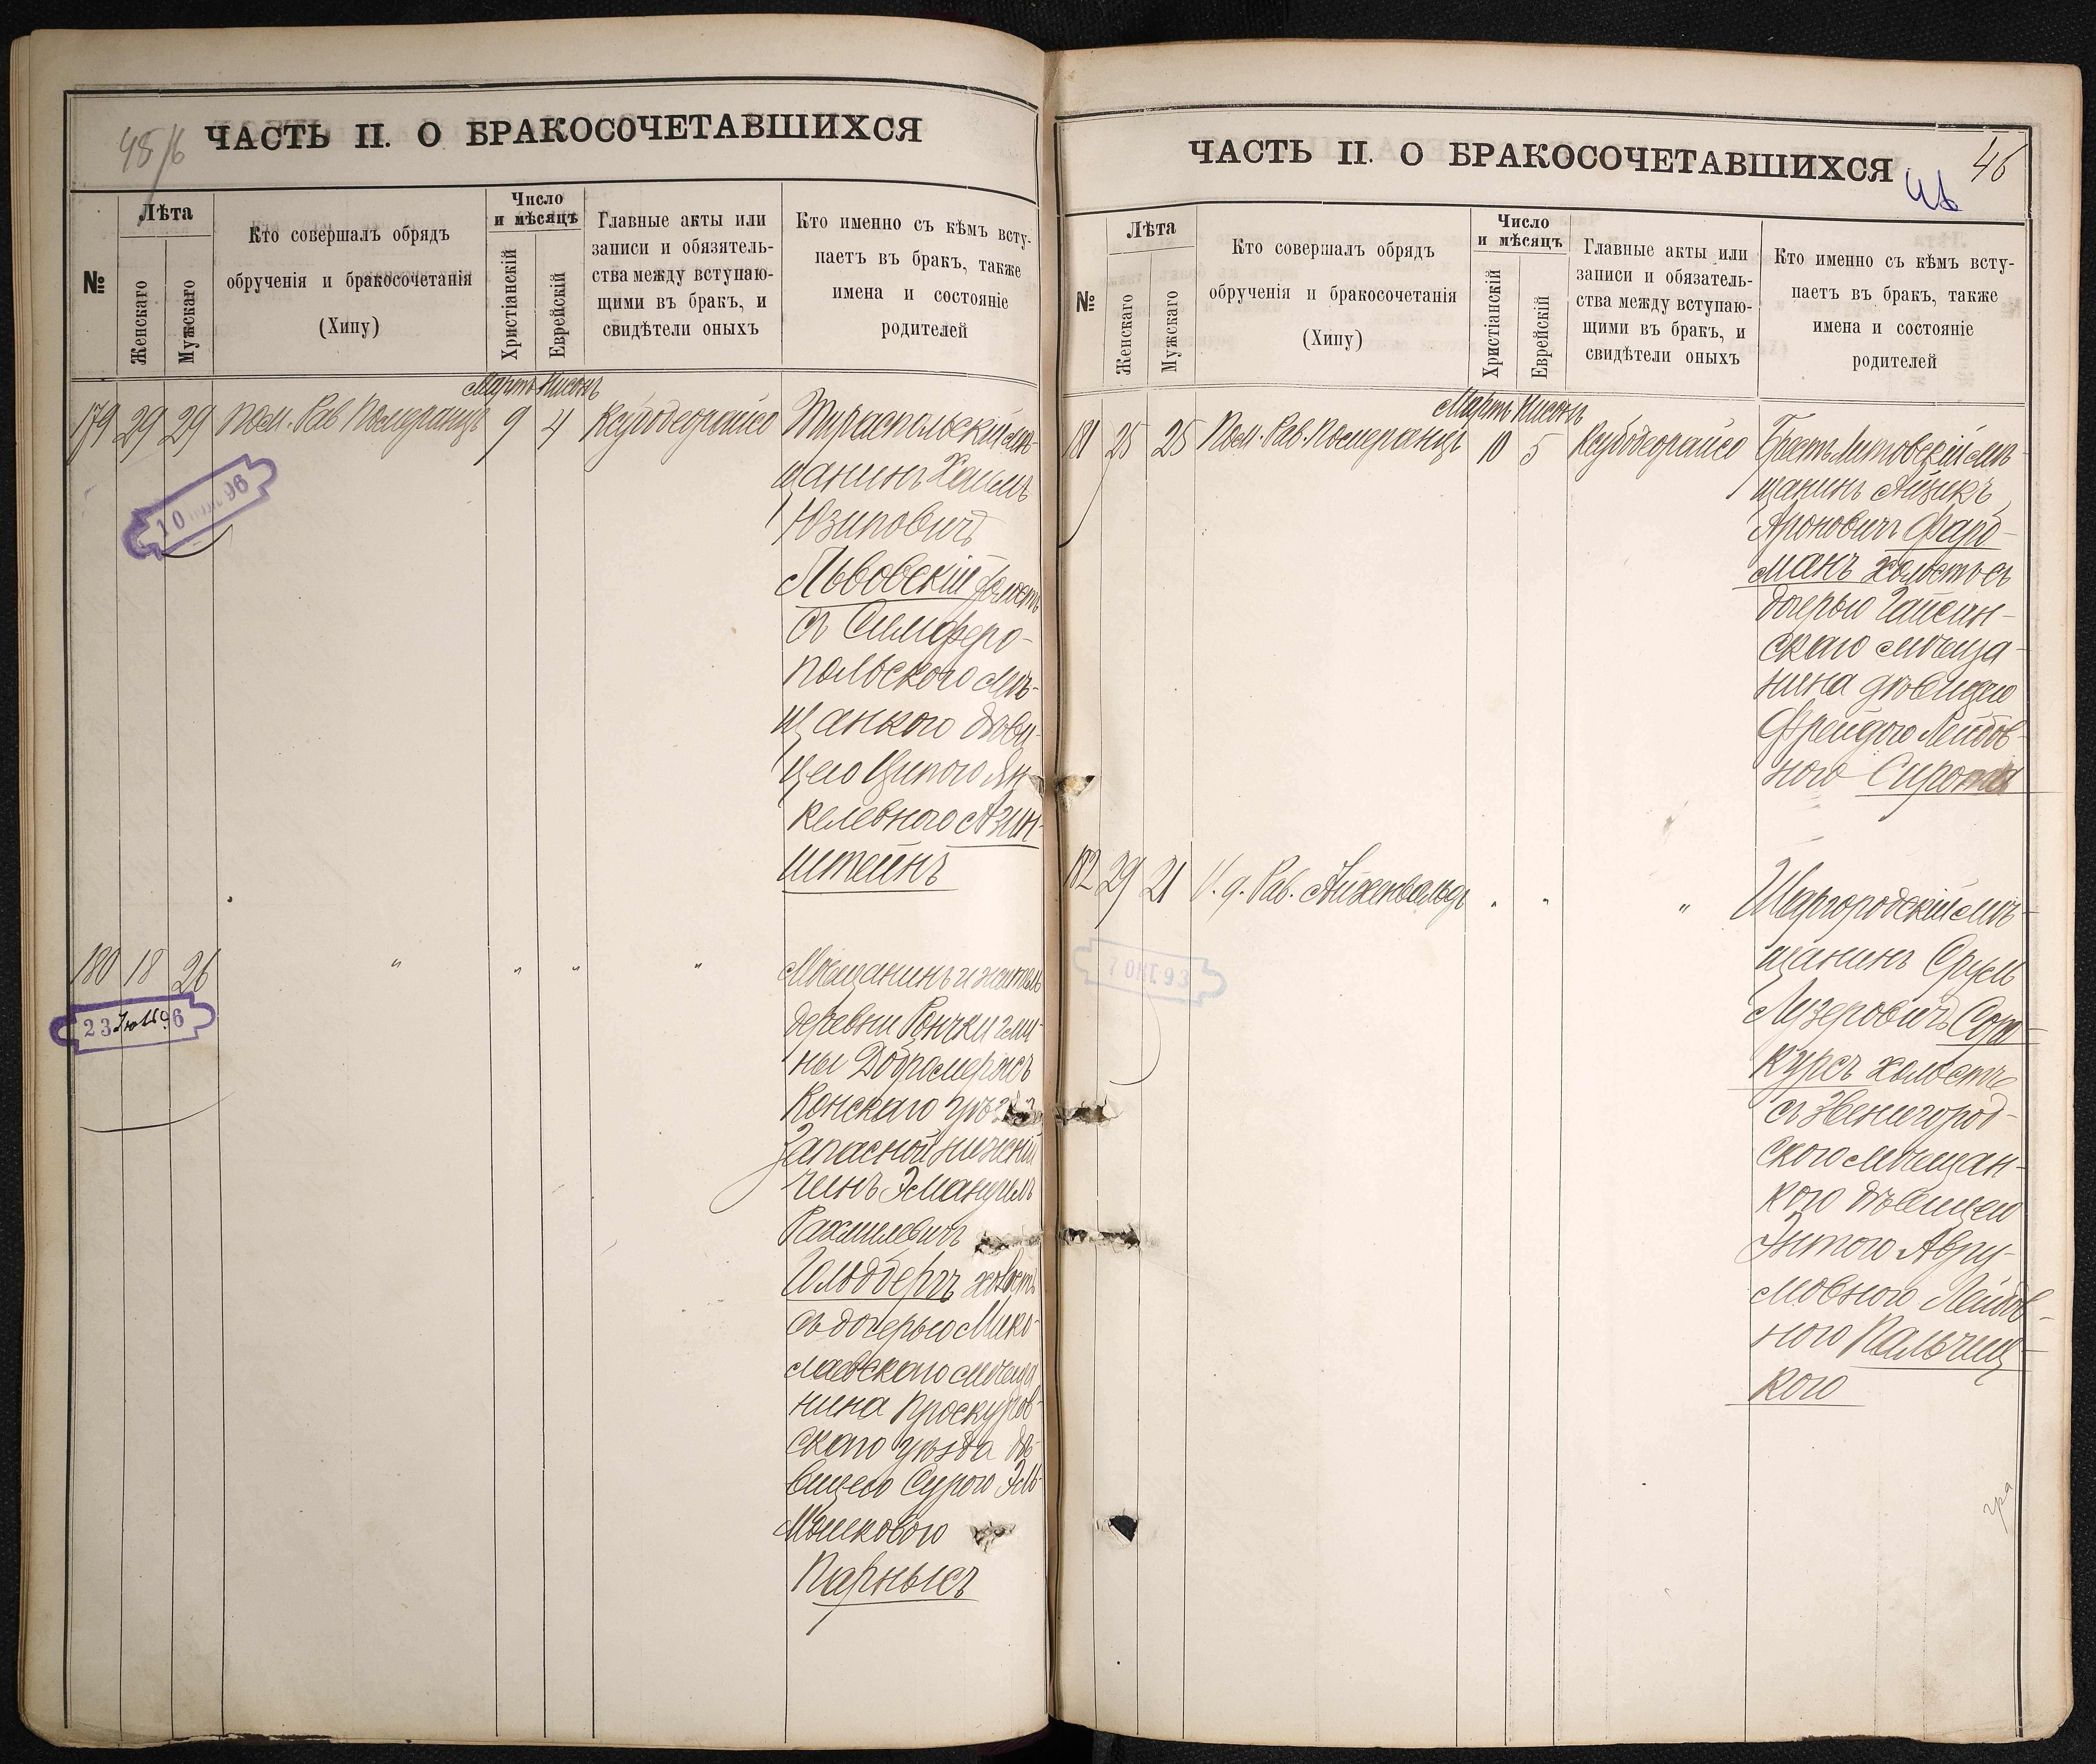 45/6
ЧАСТЬ II. О БРАКОСОЧЕТАВШИХСЯ
№
Лѣта
Женскаго
Мужскаго
Кто совершалъ обрядъ
обрученія и бракосочетанія
(Хипу)
Число
и мѣсяцъ
Христіанскій
Еврейскій
Главные акты или
записи и обязятель-
ства между вступаю-
щими въ бракъ, и
свидѣтели оныхъ
Кто именно съ кѣмъ всту-
паетъ въ бракъ, также
имена и состояніе
родителей
Мартъ Нисонъ
179 29 29 Пом. Рав Померанцъ 9 4 Ксубодеорайсо Тираспольскій мѣ-
щанинъ Хаимъ
Юзиповичъ
Львовскій холостъ
съ Симферо-
польскою мѣ-
щанкою дѣви-
цею Ципою Ян-
келевною Азин-
штейнъ
10 96
180 18 26 " " " " Мѣщанинъ и житель
деревни Рончки гми-
ны Добромерысъ
Конскаго уѣзда
Запасной нижній
чинъ Эмануилъ
Рахмилевичъ
Гольдбергъ холостъ
съ дочерью Мико-
лаевскаго мѣща
нина Проскуров-
скаго уѣзда дѣ-
вицею Сурою Эль-
Мошковою
Парнысъ
23 Июль 96
ЧАСТЬ II. О БРАКОСОЧЕТАВШИХСЯ
46
46
№
Лѣта
Женскаго
Мужскаго
Кто совершалъ обрядъ
обрученія и бракосочетанія
(Хипу)
Число
и мѣсяцъ
Христіанскій
Еврейскій
Главные акты или
записи и обязатель-
ства между вступаю-
щими въ бракъ, и
свидѣтели оныхъ
Кто именно съ кѣмъ всту-
паетъ въ бракъ, также
имена и состояніе
родителей
Мартъ Нисонъ
181 25 25 Пом. Рав. Померанцъ 10 5 Ксубодеорайсо Брестъ Литовскій мѣ-
щанинъ Айзикъ
Ароновичъ Фарб-
манъ холостъ съ
дочерью Гайсин-
скаго мѣща-
нина дѣвицею
Фрейдою Лейбов-
ною Сирота
182 29 21 И. д. Рав. Айхенвальдъ " " " Шаргородскій мѣ-
щанинъ Сруль
Лузеровичъ Сор-
куръ холостъ
съ Звенигород-
скою мѣщан-
кою дѣвицею
Энтою Авру-
мовною Лейбов-
ною Пальчиц-
кою
7 ОКТ. 93